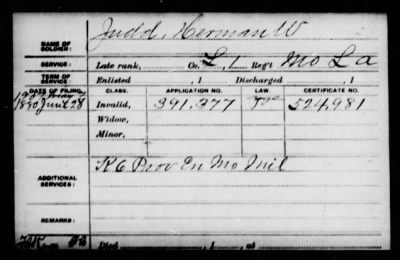 Judd, Herman W
NAME OF SOLDIER:
SERVICE: Late rank, Co. L, 1 Reg't Mo L a
TERM OF SERVICE: Enlisted , 1 Discharged , 1
DATE OF FILING. CLASS. APPLICATION NO. LAW. CERTIFICATE NO.
1880 June 28 Invalid, 391,377 524,981
Widow,
Minor,
ADDITIONAL SERVICES: K 6 Prov En Mo Mil
REMARKS:
Died , 1 , at